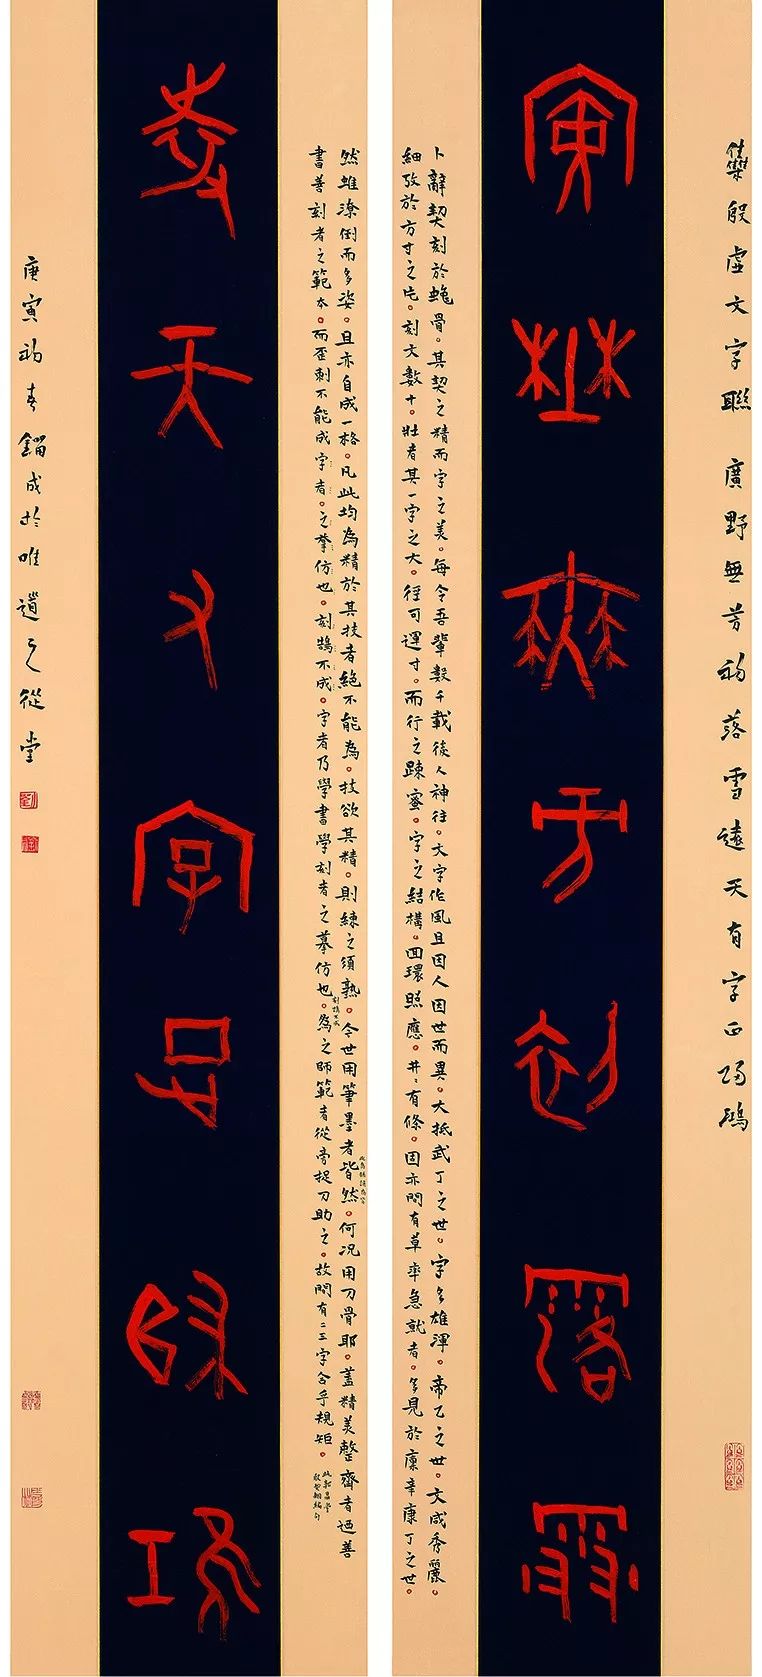 集殷虛文字聯 廣野無芳初落雪遠天有字正歸鴻
廣野無方初落雪
卜辭契刻於龜骨。其契之精而字之美。每令吾輩數千載後人神往。文字作風且因人因世而異。大抵武丁之世。字多雄渾。帝乙之世。文咸秀麗。
細攷於方寸之片。刻文數十。壯者其一字之大。徑可運寸。而行之疎密。字之結構。回環照應。井井有條。固亦間有草率急就者。多見於廩辛康丁之世。
然雖潦倒而多姿。且亦自成一格。凡此均為精於其技者絕不能為。技欲其精。則練之須熟。今世用筆墨者皆然。何況用刀骨耶。蓋精美整齊者迺善
書善刻者之範本。而歪刺不能成字者。之摹仿也。刻鵠不成。字者乃學書學刻者之摹仿也。為之師範者從旁捉刀助之。故間有二三字合乎規矩。
遠天有字正歸鴻
庚寅初春鎦成於唯道之從堂